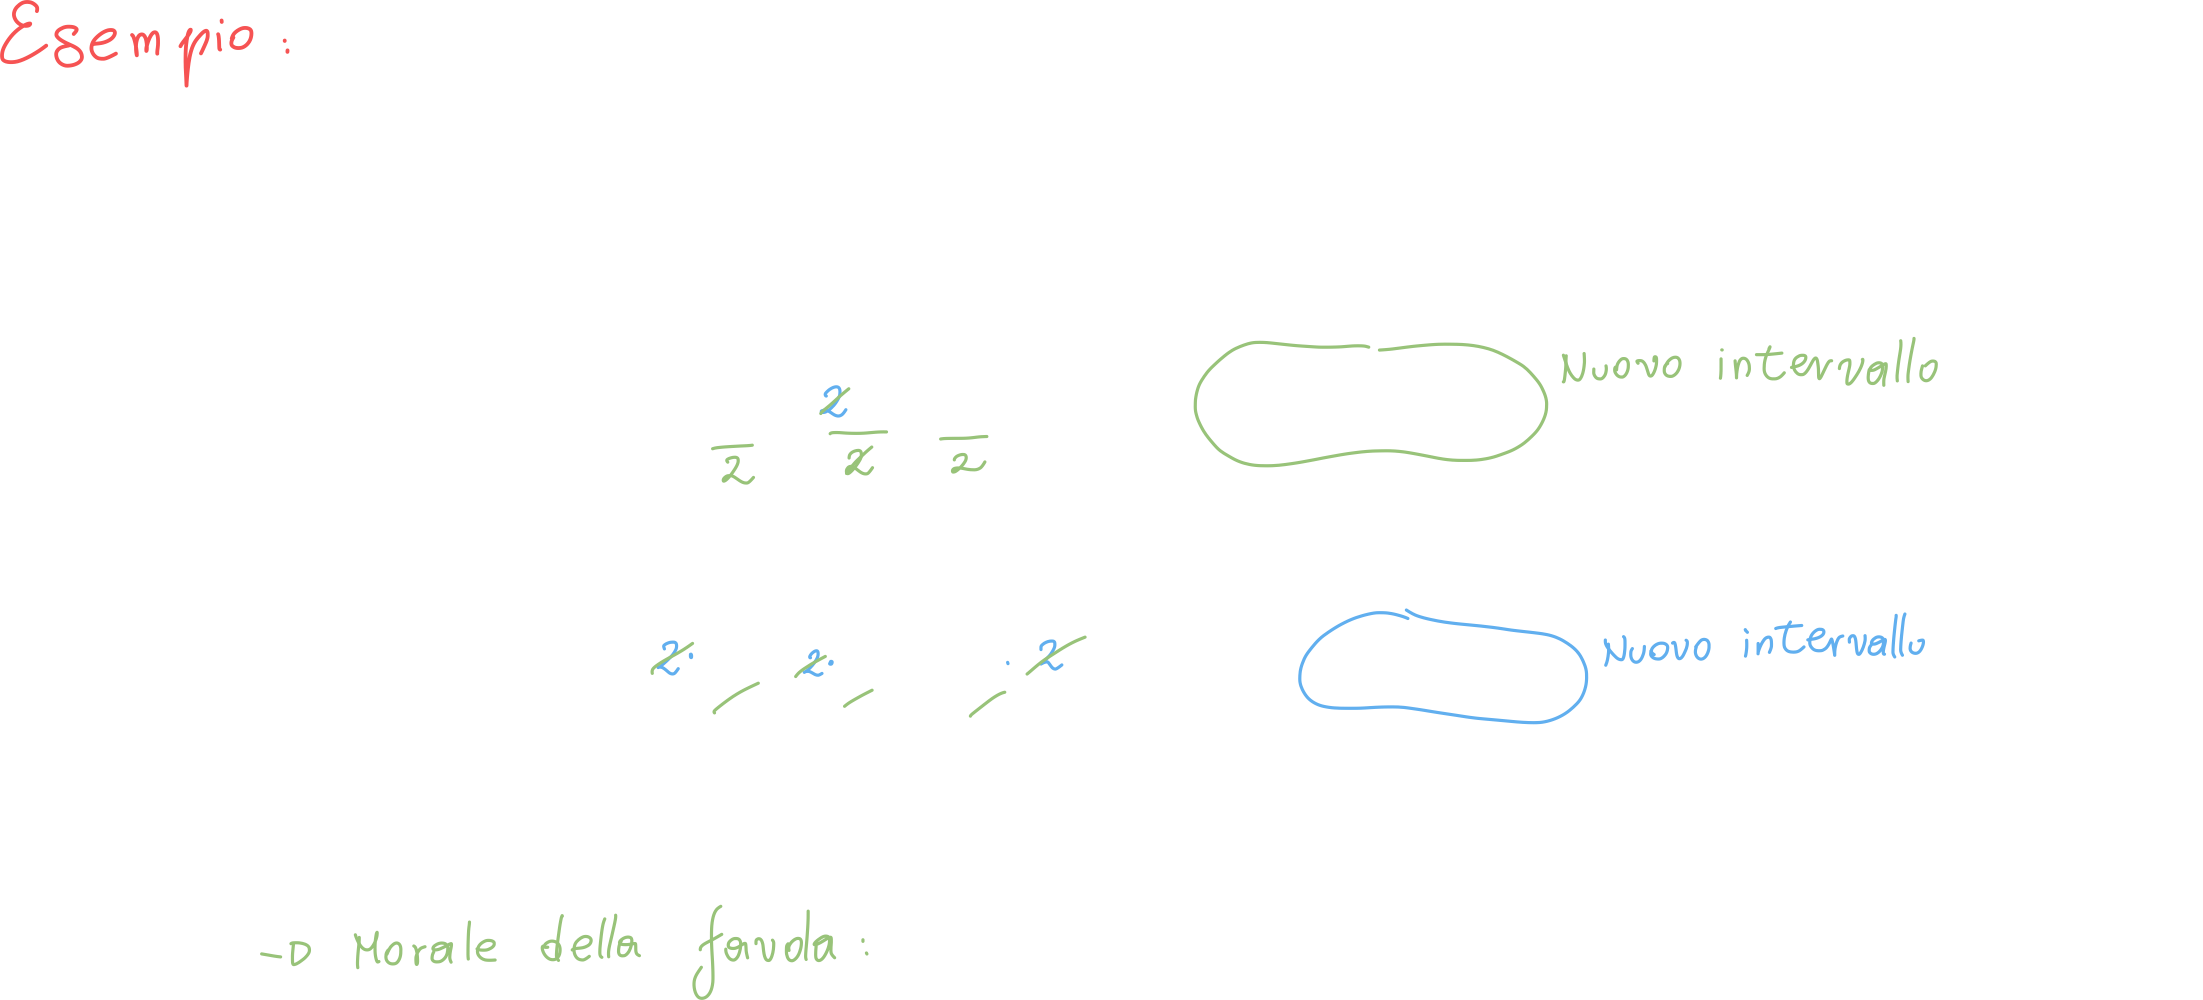 Esempio:
Nuovo intervallo
2
2 2 2
2· 2· ·2
Nuovo intervallo
→ Morale della favola: